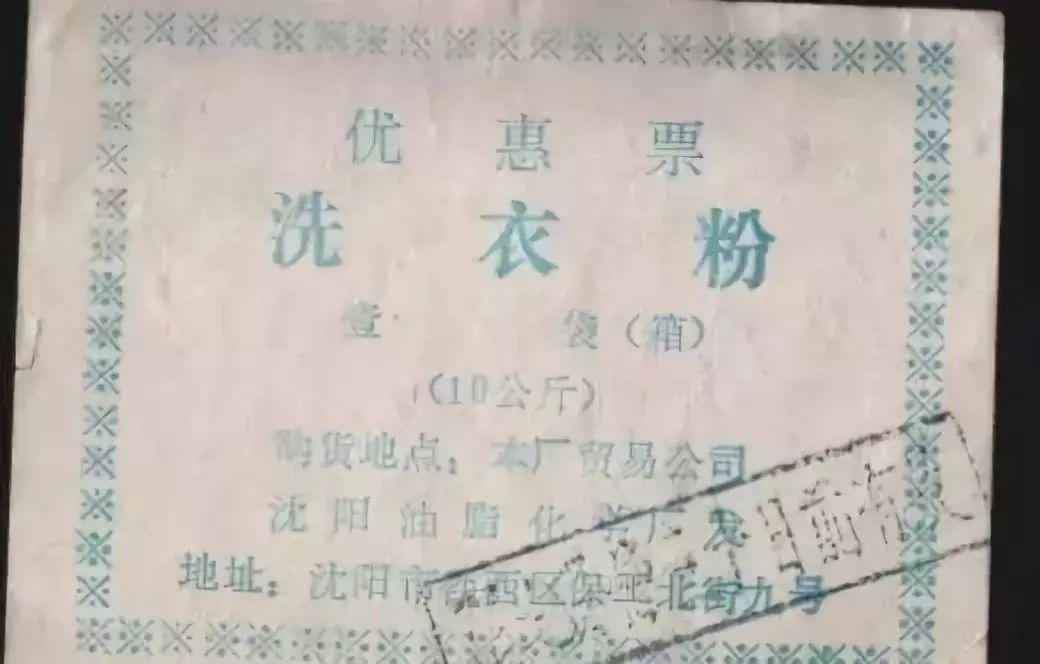 优惠票
洗衣粉
壹 袋（箱）
（10公斤）
购货地点：本厂贸易公司
沈阳油脂化学厂发
地址：沈阳市铁西区保工北街九号
月前有效